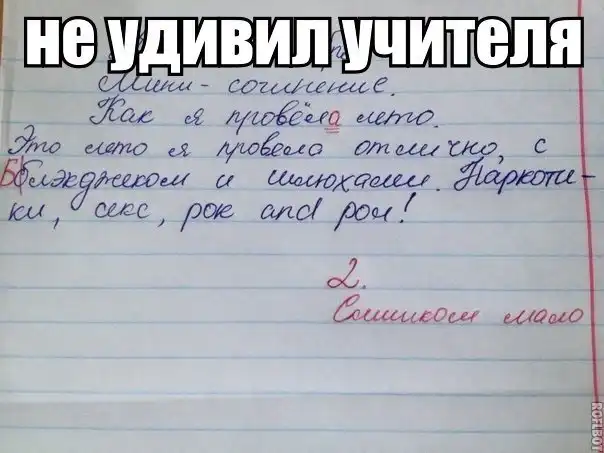 не удивил учителя
Мини - сочинение.
Как я провёла лето.
Это лето я провела отлично, с
Блэкджеком и шлюхами. Наркоти-
ки, секс, рок and рол!
2.
Слишком мало
ROFL.BOT